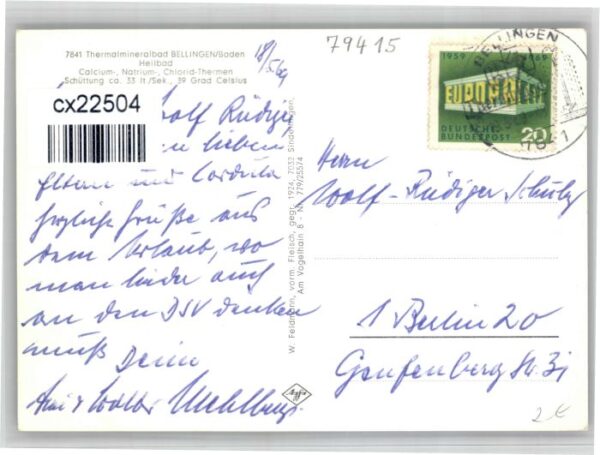 7841 Thermalmineralbad BELLINGEN/Baden
Heilbad
Calcium-, Natrium-, Chlorid-Thermen
Schüttung ca. 33 lt/Sek., 39 Grad Celsius
79415
cx22504
Wolf Rüdiger
lieben
Eltern und Cordula
herzliche Grüße aus
dem Urlaub, wo
man leider auch
an den DSV denken
muß
Deine
W. Feldmann, vorm. Fleisch, gegr. 1924, 7032 Sindelfingen,
Am Vogelhain 8 - Nr. 779/25574
Agfa
BELLINGEN
7841
1959 1969
EUROPA CEPT
DEUTSCHE
BUNDESPOST
20
Herrn
Wolf-Rüdiger Schulz
1 Berlin 20
2 €